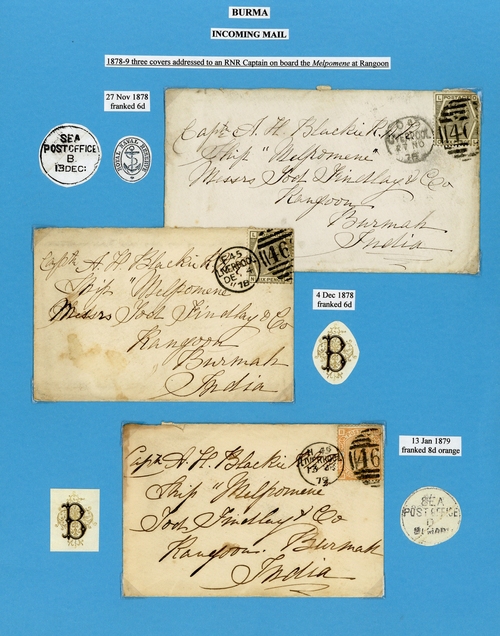 BURMA
INCOMING MAIL
1878-9 three covers addressed to an RNR Captain on board the Melpomene at Rangoon
27 Nov 1878
franked 6d
SEA
POST OFFICE
B
13 DEC
ROYAL NAVAL RESERVE
Capt. A. H. Blackie R.
Ship "Melpomene"
Messrs Todd Findlay & Co
Rangoon
Burmah
India
LIVERPOOL
27 NO
78
POSTAGE
466
Capt. A. H. Blackie R
Ship "Melpomene"
Messrs Todd Findlay & Co
Rangoon
Burmah
India
LIVERPOOL
DE 4
78
466
4 Dec 1878
franked 6d
B
13 Jan 1879
franked 8d orange
Capt. A. H. Blackie R
Ship "Melpomene"
Todd Findlay & Co
Rangoon. Burmah
India
LIVERPOOL
79
466
B
SEA
POST OFFICE